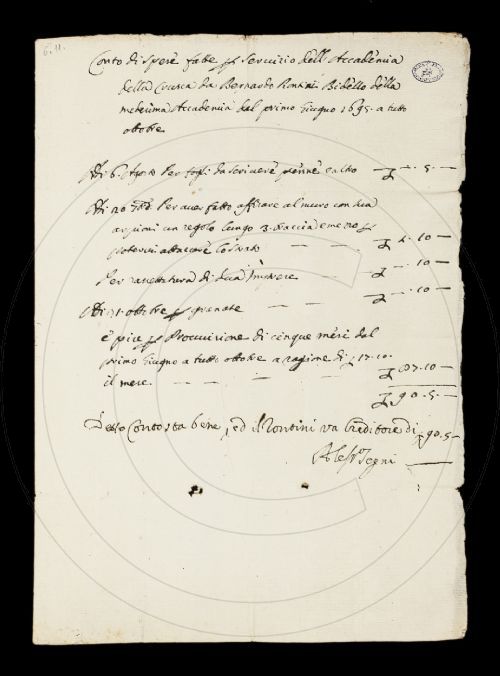 6. 11.
Conto di spese fatte p servizio dell Accademia
della Crusca da Bernardo Rontini Bidello della
medesima Accademia dal primo Giugno 1695. a tutto
ottobre
Adi 6. Agosto Per fogli da scrivere penne e altro — £ — . 5 . —
Adi 20 detto Per aver fatto affisare al muro con dua
arpioni un regolo lungo 3. braccia e mezzo p
potervi attaccare — — £ 1. 10 —
Per rassettatura di dua Imprese — £ — . 10 —
Adi 31. ottobre p granate — — £ — . 10 —
e piu p Provvisione di cinque mesi dal
primo Giugno a tutto ottobre a ragione di £ 17. 10.
il mese. — — — — £ 87. 10 —
£ 90. 5 —
Detto Conto sta bene, ed il Rontini va Creditore di £ 90. 5 —
Aless.º Segni